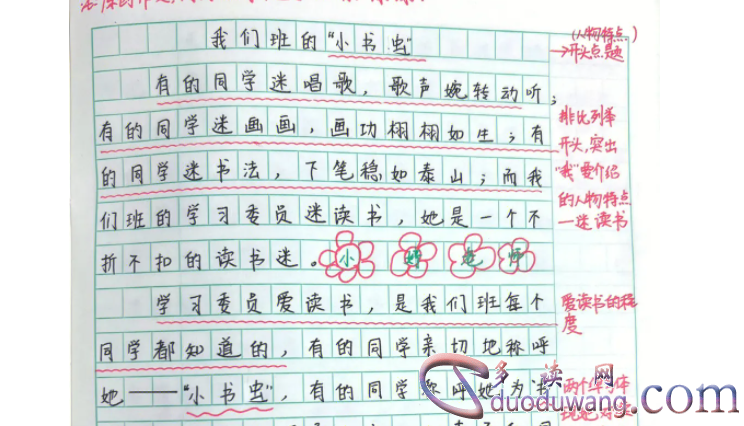 我们班的"小书虫"
(人物特点)
→开头点题
有的同学迷唱歌，歌声婉转动听；
有的同学迷画画，画功栩栩如生；有
的同学迷书法，下笔稳如泰山；而我
们班的学习委员迷读书，她是一个不
折不扣的读书迷。小
排比列举
开头,突出
"我"要介绍
的人物特点
—迷读书
学习委员爱读书，是我们班每个
同学都知道的，有的同学亲切地称呼
她——"小书虫"，有的同学称呼她为书
爱读书的程
度
多读网
duoduwang.com